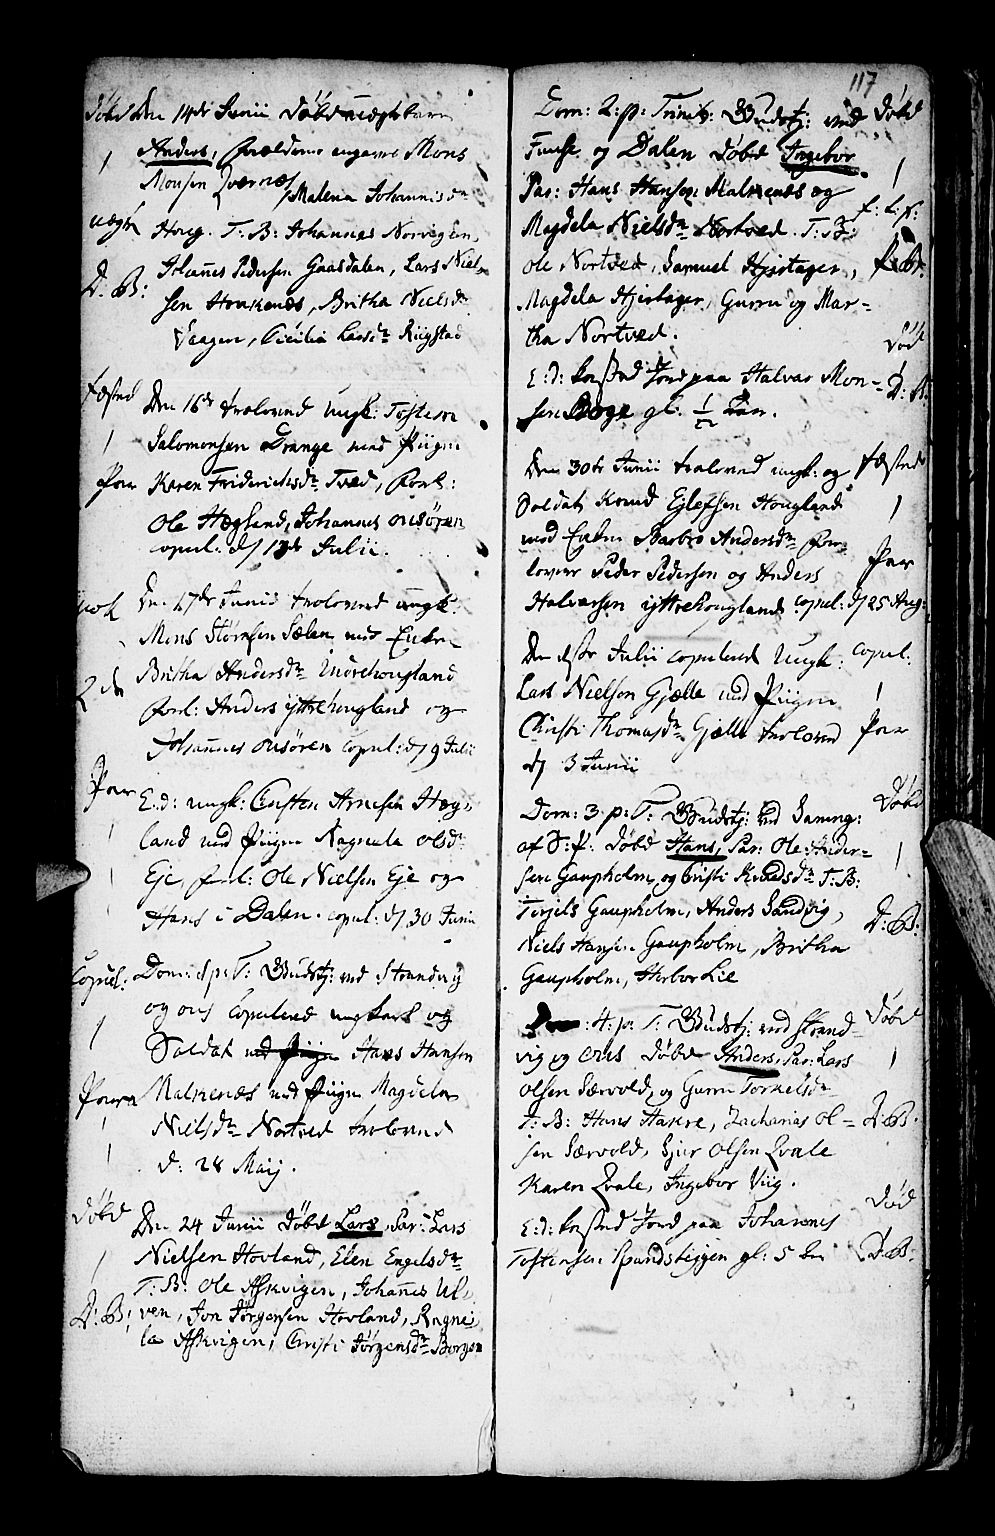 117
Døbd Den 14de Junii Døbd uægte barn
1 Anders, Forældrene angaves Mons
Monsen Qværnes / Malena Johannisdr
uægte Houg. T: B: Johannes Norvigen,
D: B: Johannes Pedersen Gaasdalen, Lars Niel-
sen Haukenæs, Britha Nielsdr
Vaagen, Cicilia Larsdr Riigstad
fæsted Den 16de troloved ungk: Tosten
1 Salomonsen Drange med Piigen
Par Karen Friderichsdr Tved, Forl:
Ole Hægland, Johannes onsøren
copul: d/ 13de Julii.
nok Den 17de Junii troloved ungk:
Mons Størksen Sælen med Enken
2 Britha Andersdr Indrehougland
Forl: Anders yttrehougland og
Johannes onsøren copul: d/ 9 Julii
Par E: d: ungk: Carsten Arnesen Hæg-
land med Piigen Ragnela olsdr
Eje, forl: Ole Nielsen Eje og
Hans i Dalen. copul: d/ 30 Junii
Copul: Dom: 1 p: T: Gudstj: ved Strandvig
og ous Copulered ungkarl og
1 Soldat med Piigen Hans Hansen
Par Malkenæs med Piigen Magdela
Nielsdr Nortved troloved
d: 28 Maij.
Døbd Den 24 Junii Døbd Lars, Par: Lars
1 Nielsen Hovland, Elen Engelsdr
T: B: Ole Askvigen, Johannes Ul-
D: B: ven, Jon Jørgensen Hovland, Ragne-
la Askvigen, Christi Jørgensdr Borgen
Dom: 2: p: Trinit: Gudstj: ved Døbd
Fuuse og Dalen Døbd Ingebor 1
Par: Hans Hansen Malkenæs og
Magdela Nielsdr Nortved. T: B:
Ole Nortved, Samuel Hjertager,
Magdela Hjertager, Gurru og Mar-
tha Nortved. Død
E: d: kasted Jord paa Halvar Mon- D: B:
sen Boge gl: 1/2 aar.
Den 30te Junii troloved ungk: og fæsted
Soldat Knud Ejlefsen Hougland 1
med Enken Barbro Andersdr for- Par
lovere Peder Pedersen og Anders
Halvorsen yttrehougland copul: d/ 25 Aug:
Den 1ste Julii copulered Ungk: copul:
Lars Nielsen Gjelle med Piigen 1
Christi Thomasdr Gjelle troloved Par
d/ 3 Junii
Dom: 3: p: T: Gudstj: ved Saming: Døbd
af S: P: Døbd Hans, Par: Ole Ander- 1
sen Gaupholm, og Cristi Knudsdr T: B:
Torjels Gaupholm, Anders Sandvig, D: B:
Niels Hansen Gaupholm, Britha
Gaupholm, Herbor Lie
Dom: 4: p: T: Gudstj: ved Strand- Døbd
vig og Ous Døbd Anders, Par: Lars 1
Olsen Særvold, og Gurru Torkelsdr
T: B: Hans Hakre, Zacharias Ol- D: B:
sen Særvold, Sjur Olsen Qvale
Karen Qvale, Ingebor Viig. Død
E: d: kasted Jord paa Johannes
Tostensen Spundskiggen gl: 5 D: B: